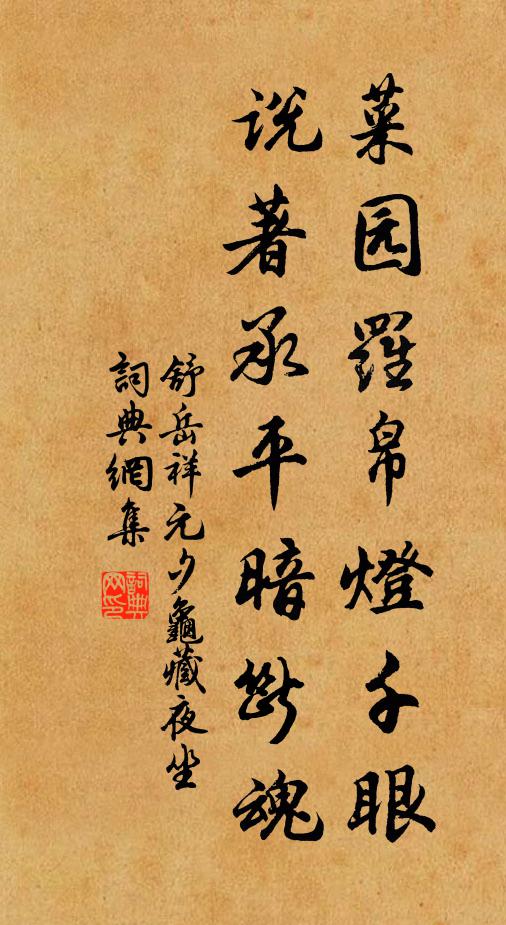 菜园羅帛燈千眼
说著承平暗断魂
舒岳祥元夕龜藏夜坐
詞典網集
詞典网印